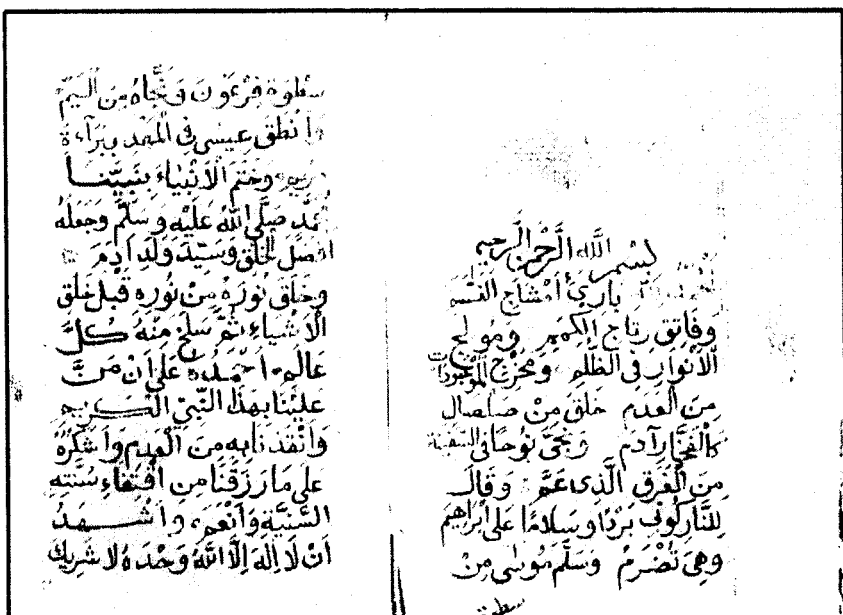 بِسْمِ اللَّهِ الرَّحْمَنِ الرَّحِيمِ
بَارِئ أَمْشَاجِ النَّسَمِ
وَفَاتِقِ رِتَاجِ الكِمَمِ وَمُولِجِ
الأَنْوَارِ فِي الظُّلَمِ وَمُخْرِجِ المَوْجُودَاتِ
مِنَ العَدَمِ خَلَقَ مِنْ صَلْصَالٍ
كَالْفَخَّارِ آدَمَ وَنَجَّى نُوحًا فِي السَّفِينَة
مِنَ الغَرَقِ الَّذِي عَمَّ وَقَالَ
لِلنَّارِ كُونِي بَرْدًا وَسَلَامًا عَلَى إِبْرَاهِيمَ
وَهِيَ تُضْرَمُ وَسَلَّمَ مُوسَى مِنْ
سطوة
سَطْوَةِ فِرْعَوْنَ وَنَجَّاهُ مِنَ الْيَمِّ
وَأَنْطَقَ عِيسَى فِي المَهْدِ وَبَرَاءَة
مريم وَخَتَمَ الأَنْبِيَاءَ بِنَبِيِّنَا
مُحَمَّد صَلَّى اللَّهُ عَلَيْهِ وَسَلَّمَ وَجَعَلَهُ
أَفْضَلَ الخَلْقِ وَسَيِّدَ وَلَدِ آدَمَ
وَخَلَقَ نُورَهُ مِنْ نُورِهِ قَبْلَ خَلْقِ
الأَشْيَاءِ ثُمَّ سَلَخَ مِنْهُ كُلَّ
عَالَم، أَحْمَدُهُ عَلَى أَنْ مَنَّ
عَلَيْنَا بِهَذَا النَّبِيِّ الكَرِيمِ
وَأَنْقَذَنَا بِهِ مِنَ العَدَمِ وَأَشْكُرُهُ
عَلَى مَا رَزَقَنَا مِنِ اقْتِفَاءِ سُنَّتِهِ
السَّنِيَّةِ وَأَنْعَمَ، وَأَشْهَدُ
أَنْ لَا إِلَهَ إِلَّا اللَّهُ وَحْدَهُ لَا شَرِيكَ